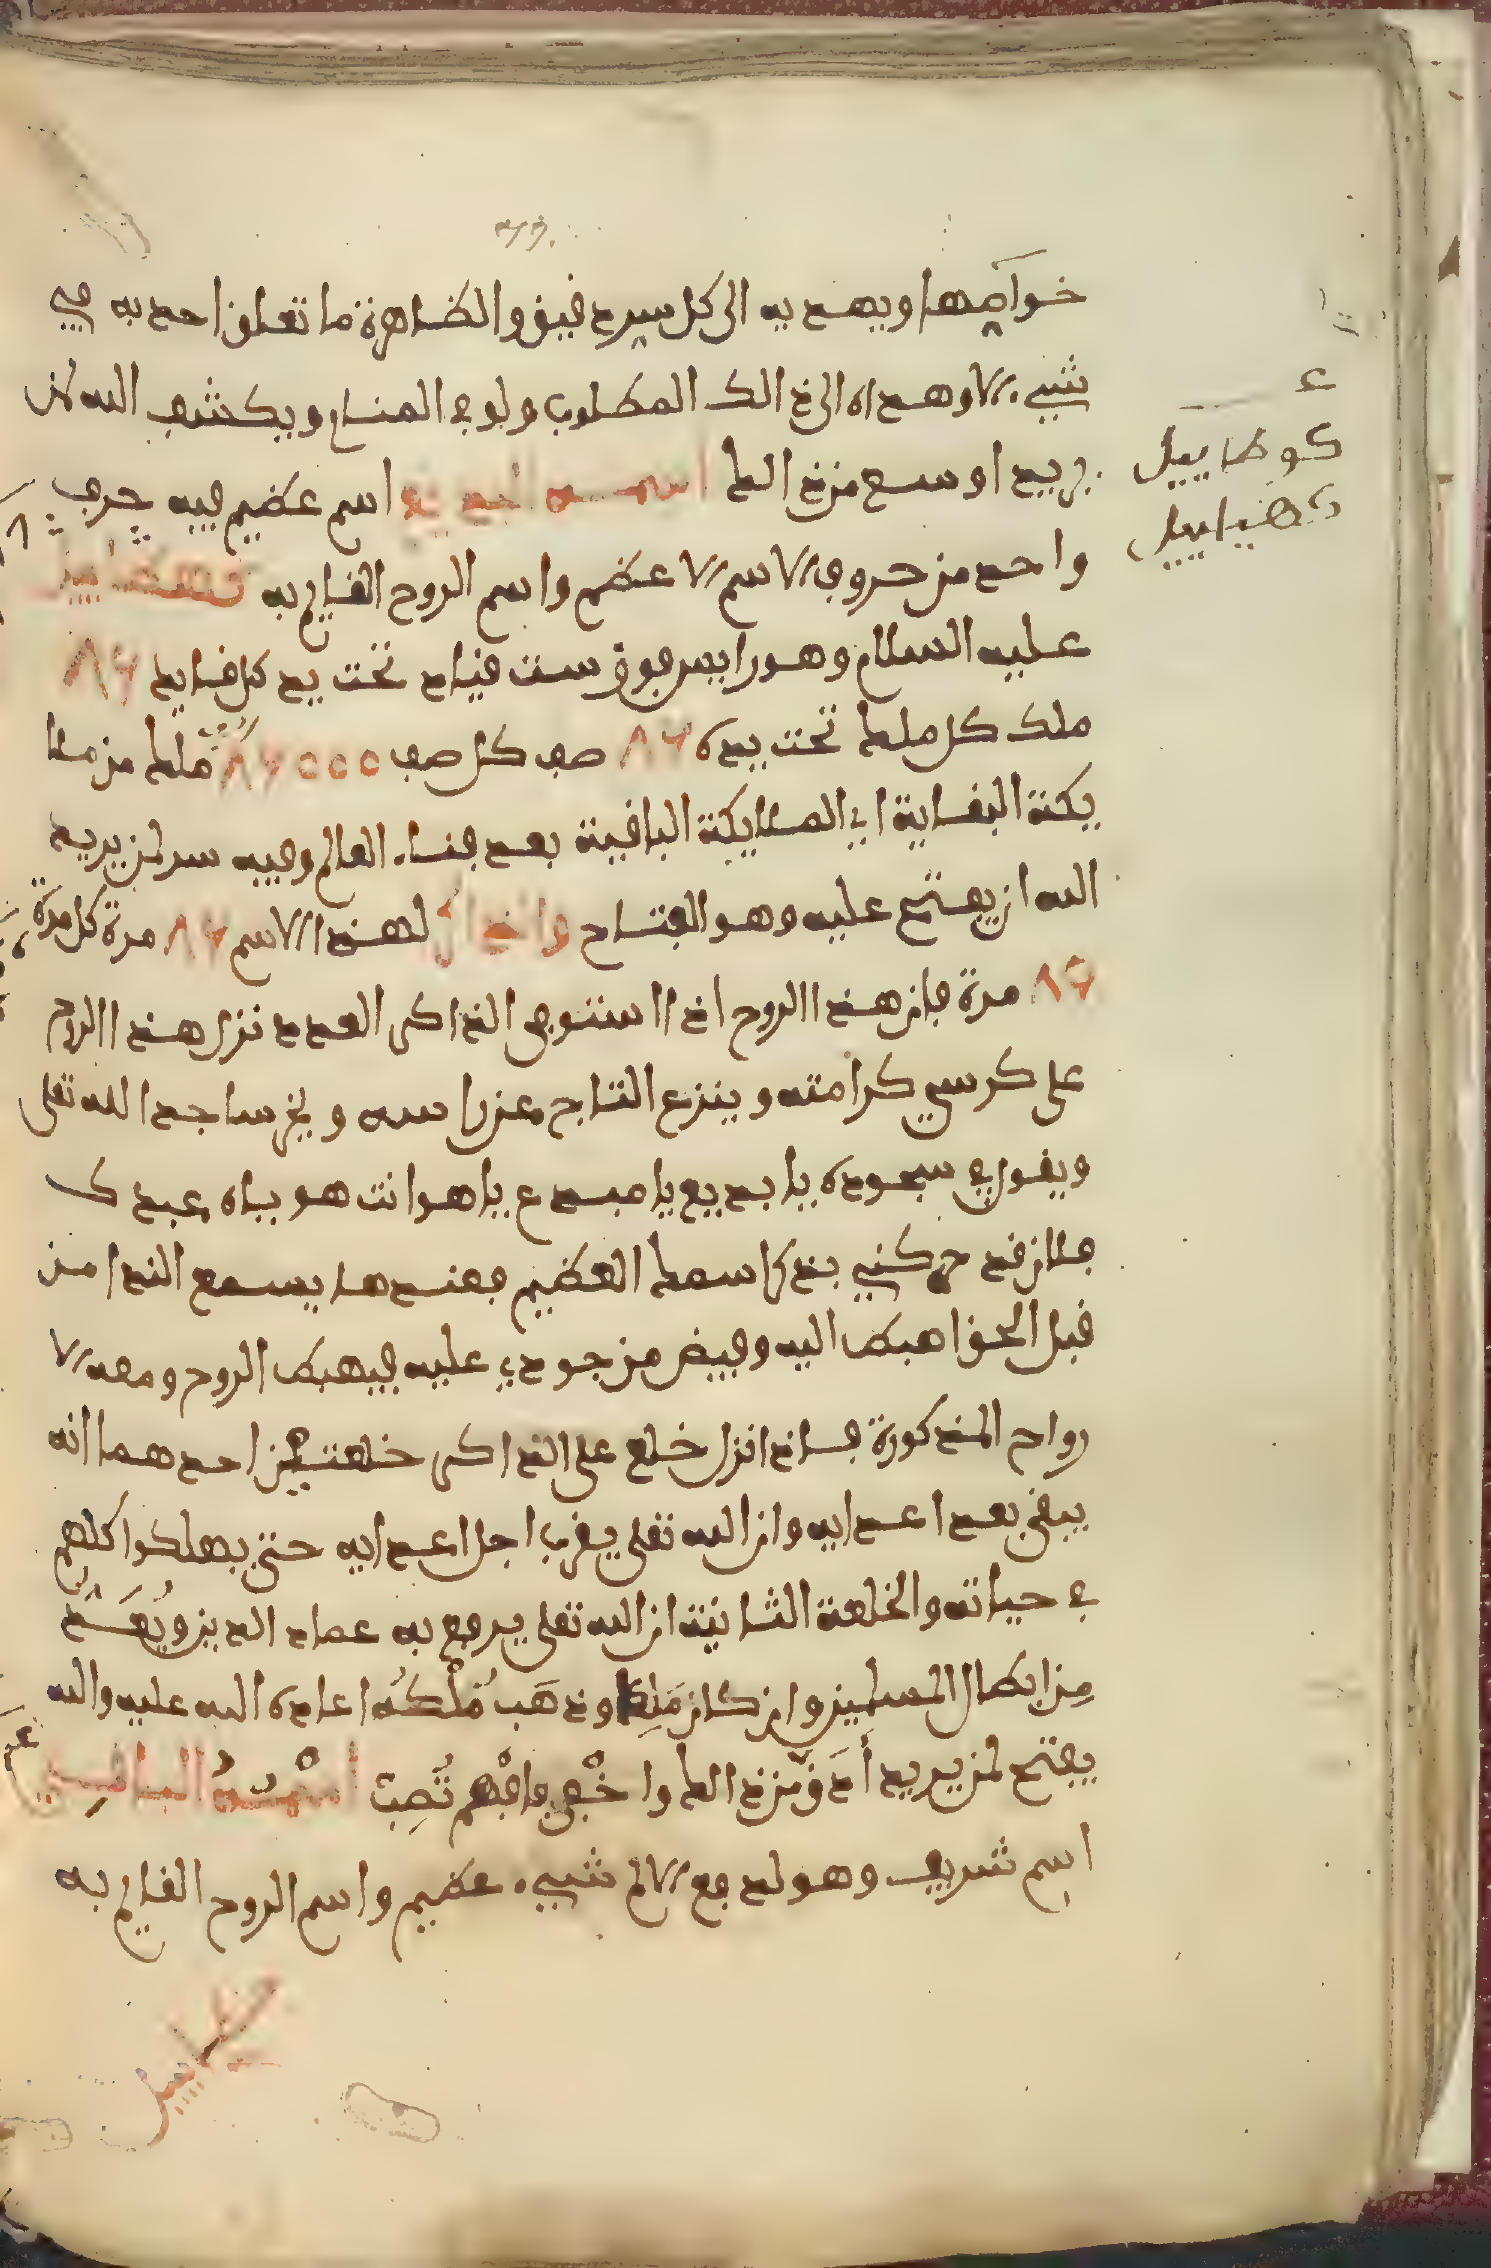 خواصها ويهديه الى كل سر دقيق والظاهرة ما تعلق احد به في
شيء الا وهداه الى ذالك المطلوب ولو في المنام ويكشف الله لمن
يريد اوسع من ذالك اسمه البديع اسم عظيم فيه حرف
واحد من حروف الاسم الاعظم واسم الروح القايم به
عليه السلام وهو راييس فوق ست قياد تحت يد كل قايد ٨٦
ملك كل ملك تحت يده ٨٦ صف كل صف ٨٦٠٠٠ ملك من ملا
يكة البقاية اي الملايكة الباقية بعد فناء العالم وفيه سر لمن يريد
الله ان يفتح عليه وهو الفتاح واذكار لهذا الاسم ٨٦ مرة كل مرة
٨٦ مرة فان هذا الروح اذا استوفى الذاكر العدد نزل هذا الروح
على كرسي كرامته وينزع التاج عن راسه ويخر ساجدا لله تعلى
ويقول في سجوده يا بديع يا مبدع يا هو انت هو ياه عبدك
فلان قد حركني بذكر اسمك العظيم فعندها يسمع الندا من
قبل الحق اهبط اليه وفيض من جودي عليه فيهبط الروح ومعه الا
رواح المذكورة فاذا نزل خلع على الذاكر خلعتين احدهما انه
يبقى بعد اعدايه وان الله تعلى يقرب اجل اعدايه حتى يهلكوا كلهم
في حياته والخلعة الثانية ان الله تعلى يرفع به عماد الدين ويعد
من ابطال المسلمين وان كان ملكا وذهب ملكه اعاده الله عليه والله
يفتح لمن يريد ادق من ذالك واخف فافهم تصب اسمه الباقي
اسم شريف وهو لدفع الالم شيء عظيم واسم الروح القايم به
ع
كوطاييل